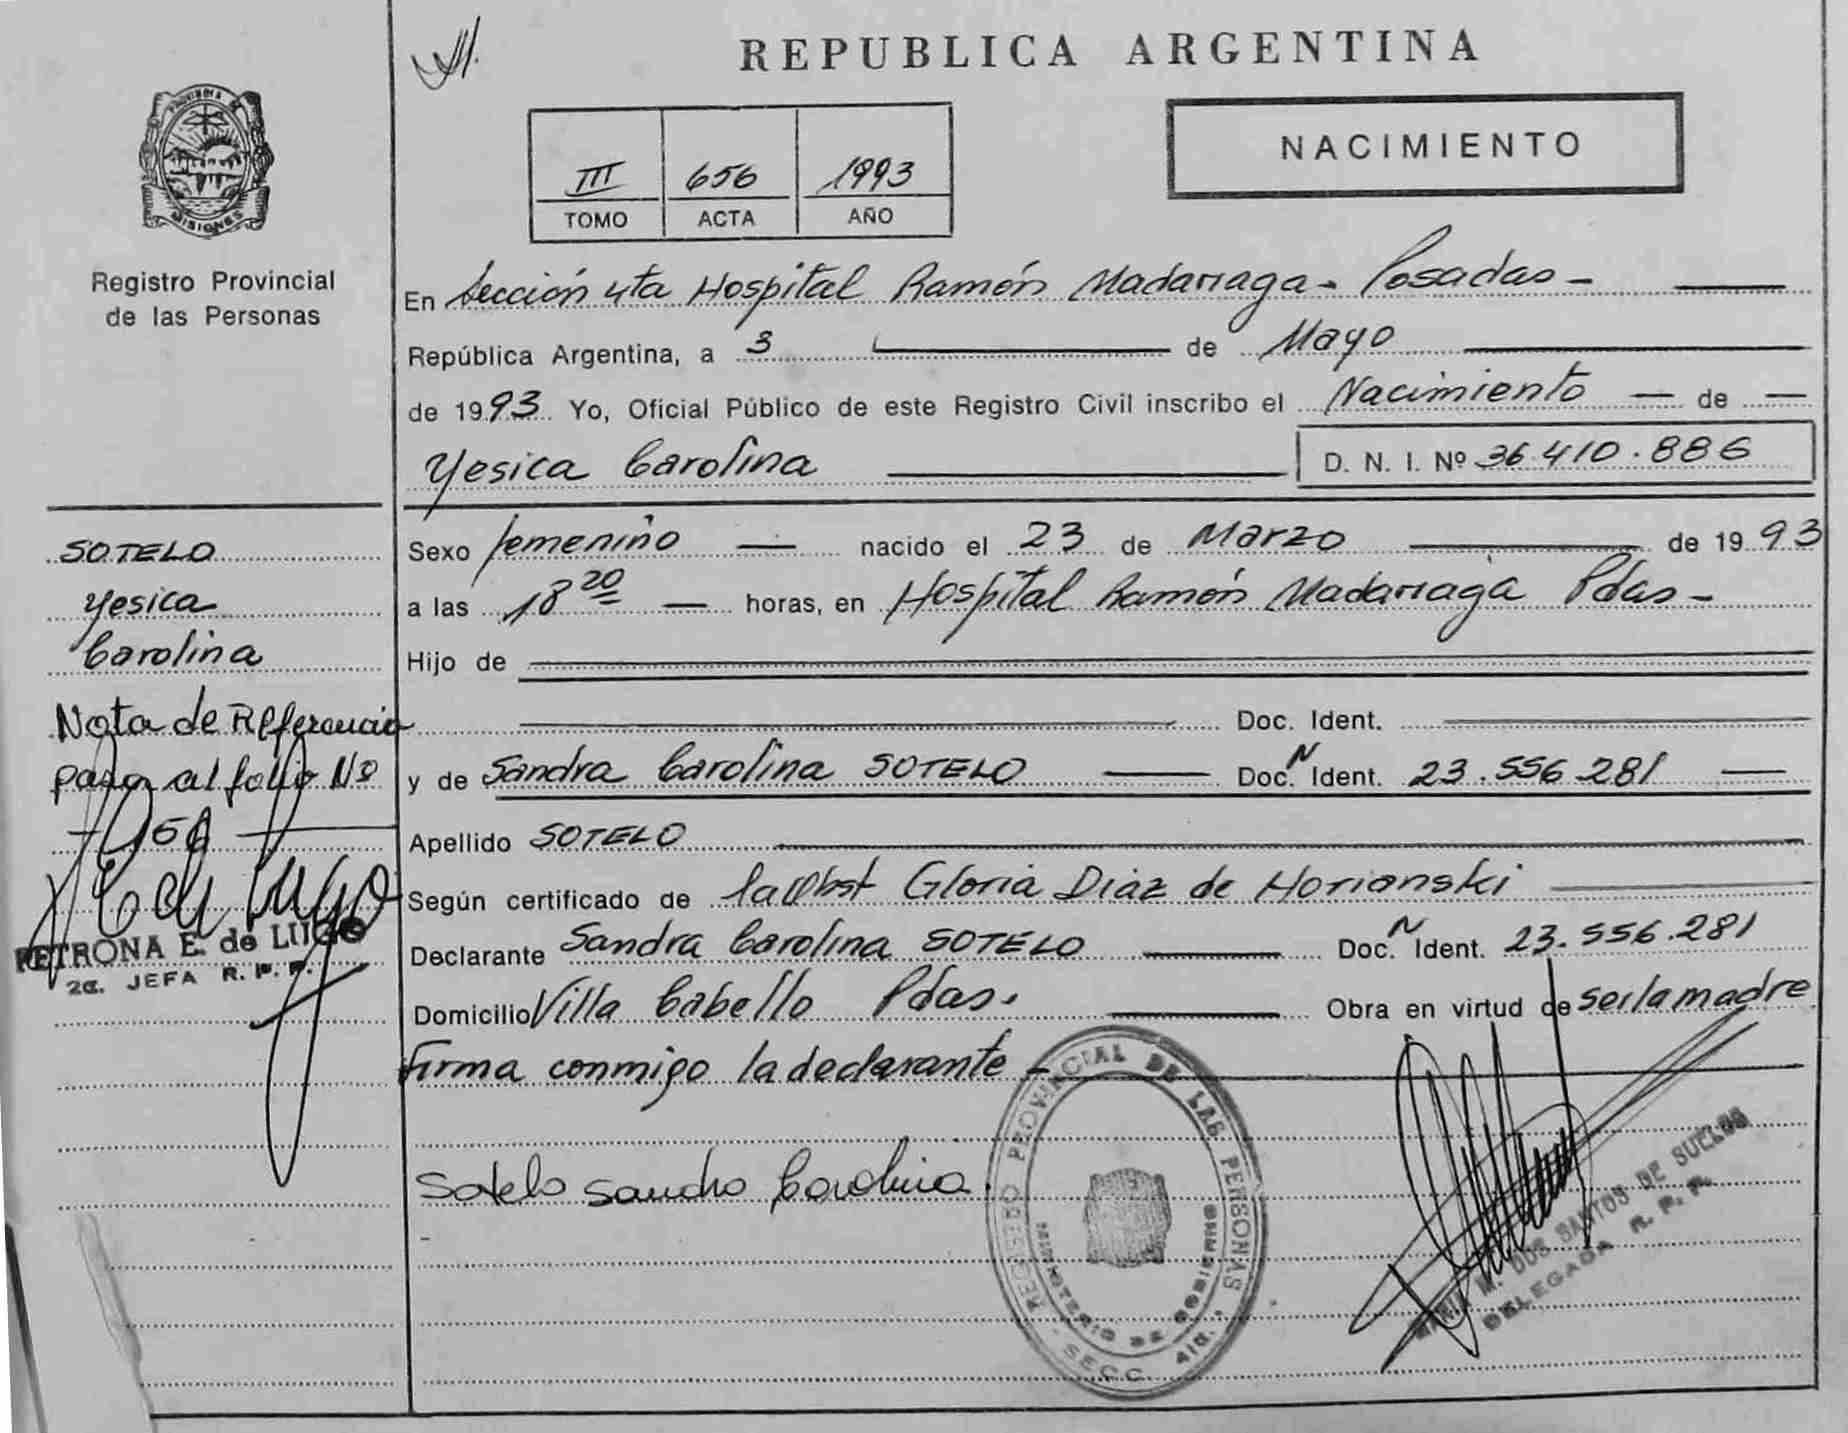 REPUBLICA ARGENTINA
PROVINCIA DE
MISIONES
Registro Provincial
de las Personas
III 656 1993
TOMO ACTA AÑO
NACIMIENTO
En Sección 4ta Hospital Ramón Madariaga - Posadas -
República Argentina, a 3 de Mayo
de 1993 Yo, Oficial Público de este Registro Civil inscribo el Nacimiento — de —
Yesica Carolina
D. N. I. Nº 36.410.886
SOTELO
Yesica
Carolina
Nota de Referencia
pasa al folio Nº
PETRONA E. de LUGO
2a. JEFA R. P. P.
Sexo femenino — nacido el 23 de Marzo de 1993
a las 18 20 — horas, en Hospital Ramón Madariaga Pdas -
Hijo de
Doc. Ident.
y de Sandra Carolina SOTELO — Doc. N Ident. 23.556.281 —
Apellido SOTELO
Según certificado de la Obst Gloria Diaz de Horianski
Declarante Sandra Carolina SOTELO — Doc. N Ident. 23.556.281
Domicilio Villa Cabello Pdas. — Obra en virtud de ser la madre
Firma conmigo la declarante -
Sotelo Sandra Carolina.
REGISTRO PROVINCIAL DE LAS PERSONAS
MINISTERIO DE GOBIERNO
SECC 4ta.
M. DOS SANTOS DE SUELOS
DELEGADA R. P. P.